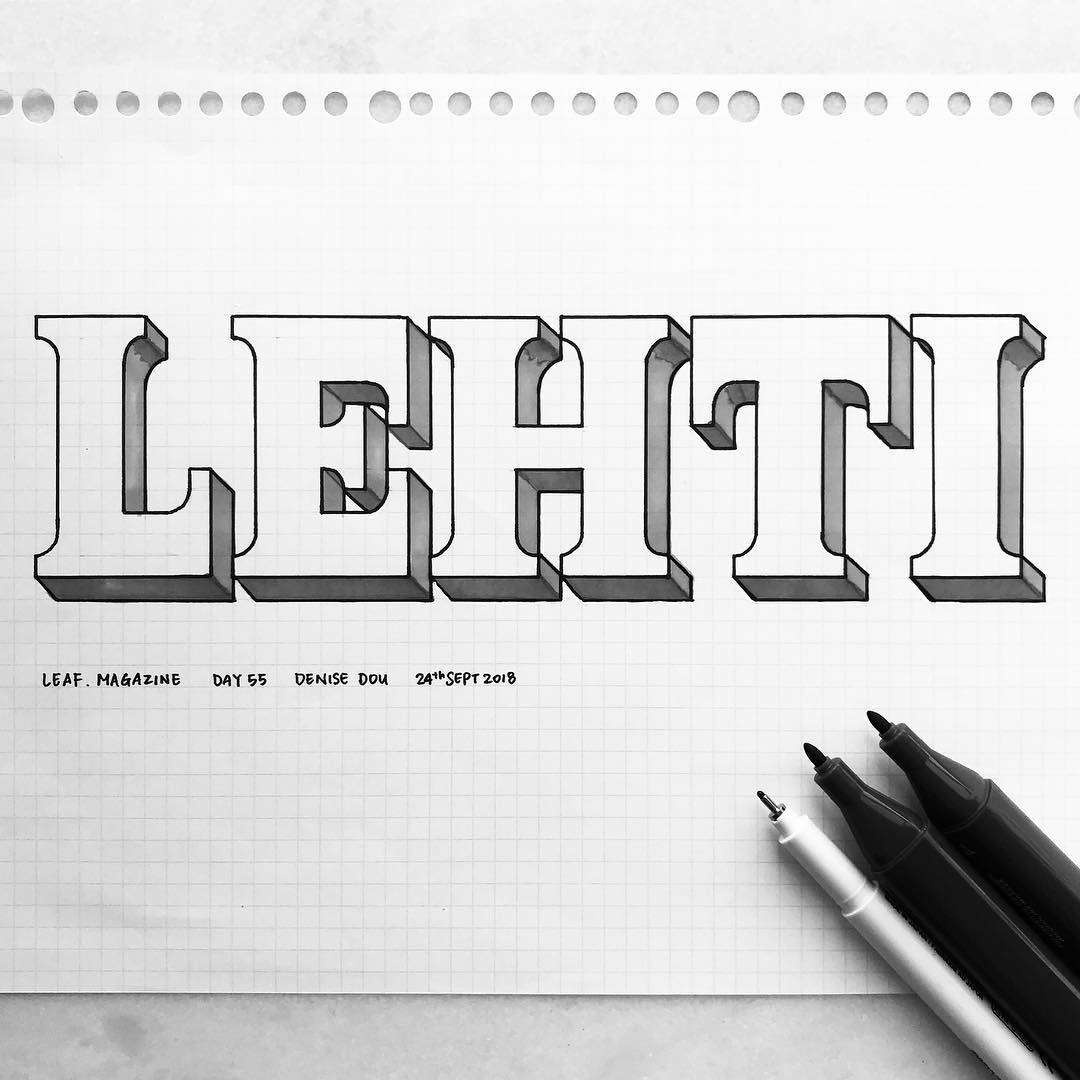 LEHTI
LEAF. MAGAZINE DAY 55 DENISE DOU 24th SEPT 2018